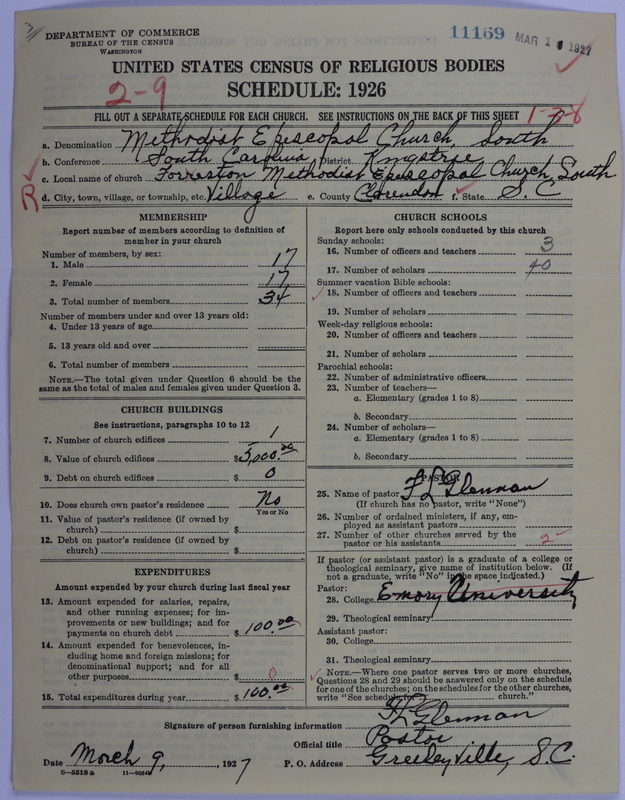 DEPARTMENT OF COMMERCE
BUREAU OF THE CENSUS
WASHINGTON
11169 MAR 1 1927
UNITED STATES CENSUS OF RELIGIOUS BODIES
SCHEDULE: 1926
2-9
FILL OUT A SEPARATE SCHEDULE FOR EACH CHURCH. SEE INSTRUCTIONS ON THE BACK OF THIS SHEET
a. Denomination Methodist Episcopal Church, South
b. Conference South Carolina District Kingstree
c. Local name of church Forreston Methodist Episcopal Church, South
R
d. City, town, village, or township, etc. Village e. County Clarendon f. State S. C.
MEMBERSHIP
Report number of members according to definition of
member in your church
Number of members, by sex:
1. Male 17
2. Female 17
3. Total number of members 34
Number of members under and over 13 years old:
4. Under 13 years of age
5. 13 years old and over
6. Total number of members
NOTE.—The total given under Question 6 should be the
same as the total of males and females given under Question 3.
CHURCH BUILDINGS
See instructions, paragraphs 10 to 12
7. Number of church edifices 1
8. Value of church edifices $3,000.00
9. Debt on church edifices $ 0
10. Does church own pastor's residence No
Yes or No
11. Value of pastor's residence (if owned by
church) $
12. Debt on pastor's residence (if owned by
church) $
EXPENDITURES
Amount expended by your church during last fiscal year
13. Amount expended for salaries, repairs,
and other running expenses; for im-
provements or new buildings; and for
payments on church debt $ 100.00
14. Amount expended for benevolences, in-
cluding home and foreign missions; for
denominational support; and for all
other purposes $ 0
15. Total expenditures during year $ 100.00
CHURCH SCHOOLS
Report here only schools conducted by this church
Sunday schools:
16. Number of officers and teachers 3
17. Number of scholars 40
Summer vacation Bible schools:
18. Number of officers and teachers
19. Number of scholars
Week-day religious schools:
20. Number of officers and teachers
21. Number of scholars
Parochial schools:
22. Number of administrative officers
23. Number of teachers—
a. Elementary (grades 1 to 8)
b. Secondary
24. Number of scholars—
a. Elementary (grades 1 to 8)
b. Secondary
PASTOR
25. Name of pastor F L Glennan
(If church has no pastor, write "None")
26. Number of ordained ministers, if any, em-
ployed as assistant pastors
27. Number of other churches served by the
pastor or his assistants 2
If pastor (or assistant pastor) is a graduate of a college or
theological seminary, give name of institution below. (If
not a graduate, write "No" in the space indicated.)
Pastor:
28. College Emory University
29. Theological seminary
Assistant pastor:
30. College
31. Theological seminary
NOTE.—Where one pastor serves two or more churches,
Questions 28 and 29 should be answered only on the schedule
for one of the churches; on the schedules for the other churches,
write "See schedule church."
Signature of person furnishing information F L Glennan
Official title Pastor
Date March 9, 1927 P. O. Address Greeleyville, S.C.
8-5518 a